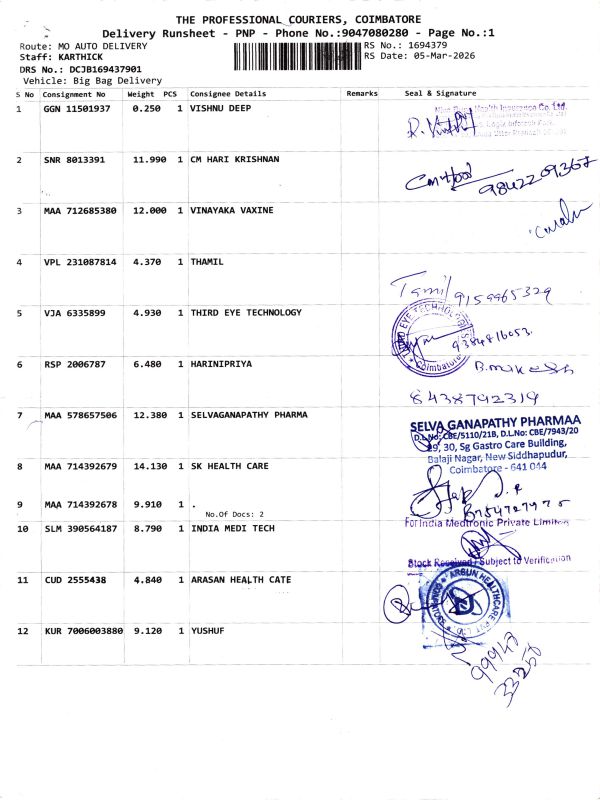 THE PROFESSIONAL COURIERS, COIMBATORE
Delivery Runsheet - PNP - Phone No.:9047080280 - Page No.:1
Route: MO AUTO DELIVERY
RS No.: 1694379
Staff: KARTHICK
RS Date: 05-Mar-2026
DRS No.: DCJB169437901
Vehicle: Big Bag Delivery
S No Consignment No Weight PCS Consignee Details Remarks Seal & Signature
1 GGN 11501937 0.250 1 VISHNU DEEP
Health Insurance Co. Ltd.
2 SNR 8013391 11.990 1 CM HARI KRISHNAN
9842209367
3 MAA 712685380 12.000 1 VINAYAKA VAXINE
4 VPL 231087814 4.370 1 THAMIL
Tamil 9159965329
5 VJA 6335899 4.930 1 THIRD EYE TECHNOLOGY
THIRD EYE TECHNOLOGIES
9384816053.
Coimbatore
6 RSP 2006787 6.480 1 HARINIPRIYA
8438742319
7 MAA 578657506 12.380 1 SELVAGANAPATHY PHARMA
SELVA GANAPATHY PHARMAA
D.L.No: CBE/5110/21B, D.L.No: CBE/7943/20
29, 30, Sg Gastro Care Building,
Balaji Nagar, New Siddhapudur,
Coimbatore - 641 044
8 MAA 714392679 14.130 1 SK HEALTH CARE
9 MAA 714392678 9.910 1 .
No.Of Docs: 2
For India Medtronic Private Limited
10 SLM 390564187 8.790 1 INDIA MEDI TECH
Stock Received / Subject to Verification
11 CUD 2555438 4.840 1 ARASAN HEALTH CATE
12 KUR 7006003880 9.120 1 YUSHUF
99948
33250